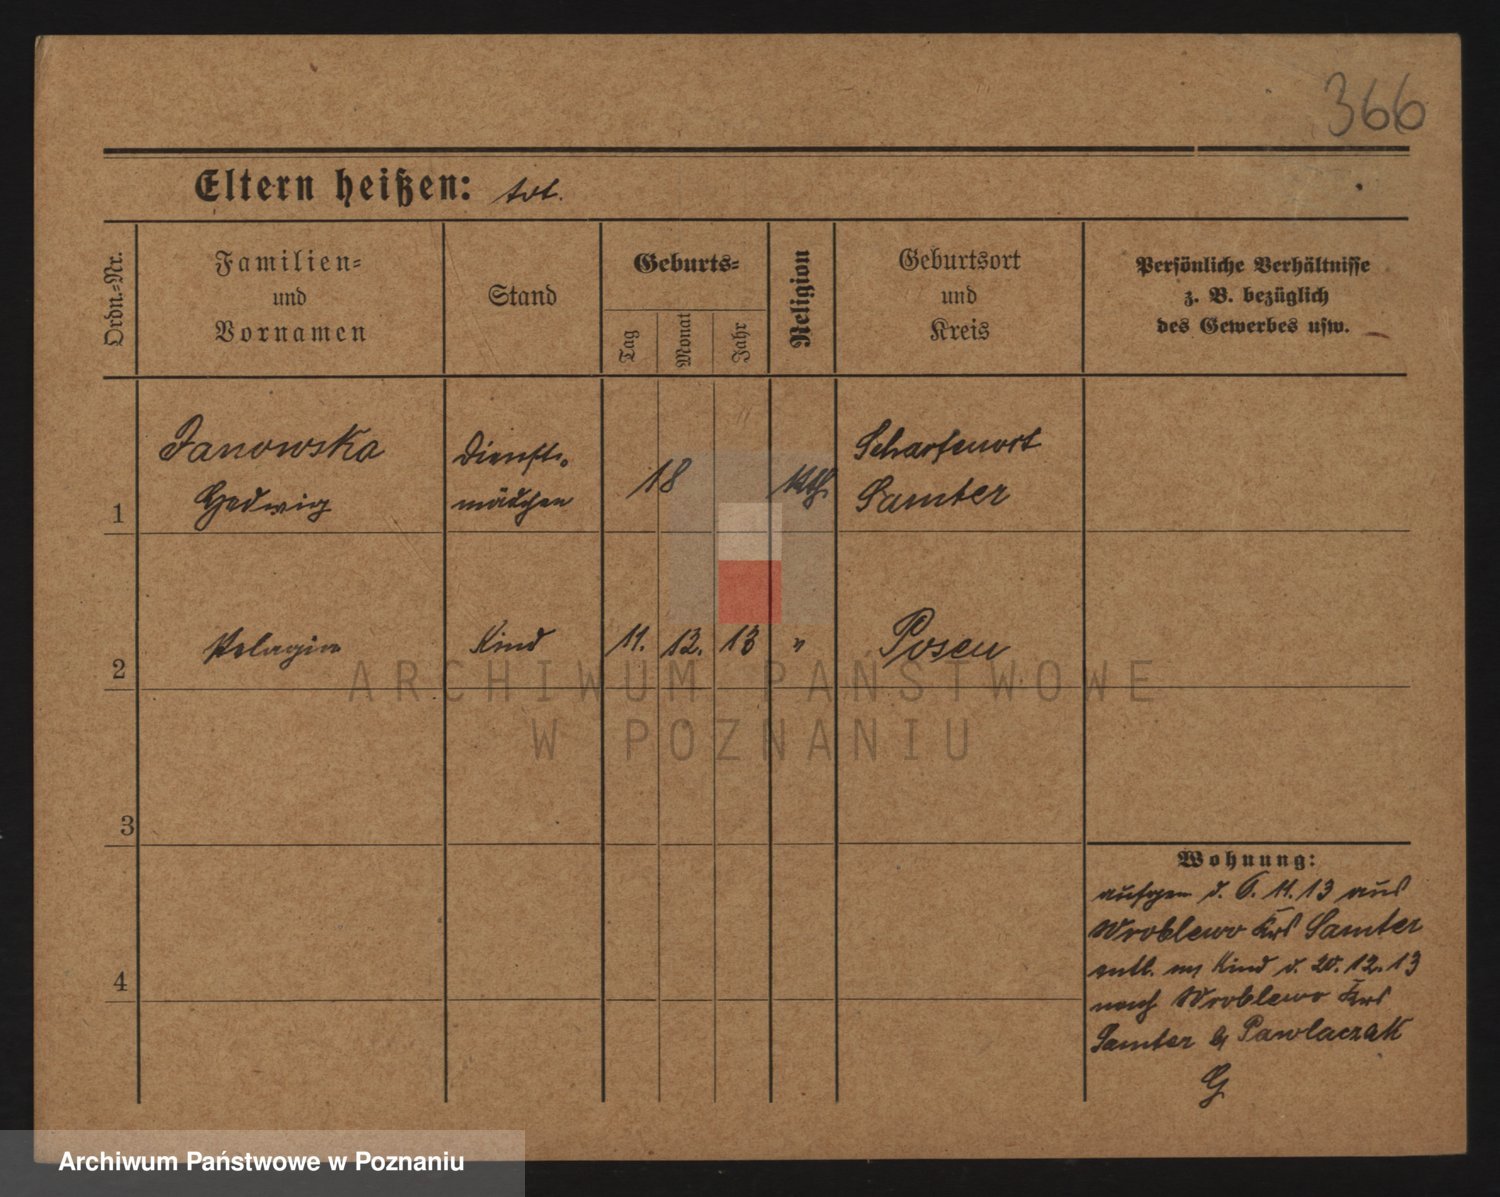 366
Eltern heißen: tot.
Ordn.-Nr.
Familien-
und
Vornamen
Stand
Geburts-
Tag
Monat
Jahr
Religion
Geburtsort
und
Kreis
Persönliche Verhältnisse
z. B. bezüglich
des Gewerbes usw.
1
Janowska
Hedwig
Dienst-
mädchen
18
kth.
Scharfenort
Samter
2
Pelagia
Kind
11. 12. 13
"
Posen
ARCHIWUM PAŃSTWOWE
W POZNANIU
3
4
Wohnung:
aufgen d. 6. 11. 13 aus
Wroblewo Krs Samter
entl. m Kind d. 20. 12. 13
nach Wroblewo Krs
Samter b Pawlaczak
G
Archiwum Państwowe w Poznaniu